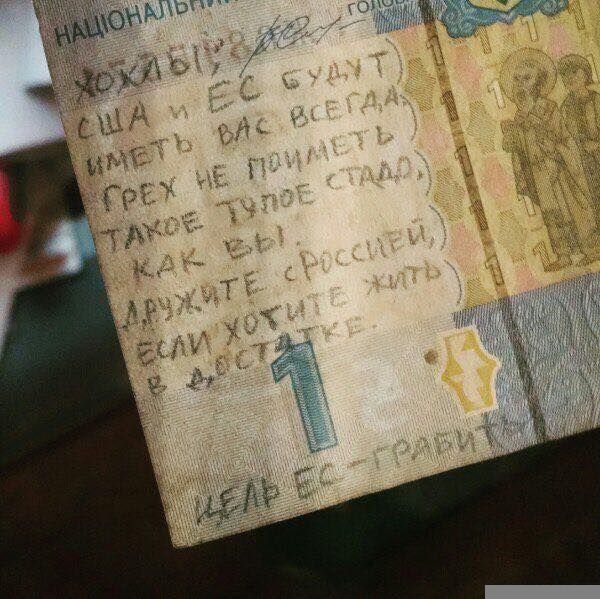 НАЦІОНАЛЬНИ
ГОЛОВ
ХОХЛЫ,
США и ЕС БУДУТ
ИМЕТЬ ВАС ВСЕГДА,
ГРЕХ НЕ ПОИМЕТЬ
ТАКОЕ ТУПОЕ СТАДО,
КАК ВЫ.
ДРУЖИТЕ С РОССИЕЙ,
ЕСЛИ ХОТИТЕ ЖИТЬ
В ДОСТАТКЕ.
1
ЦЕЛЬ ЕС-ГРАБИТЬ